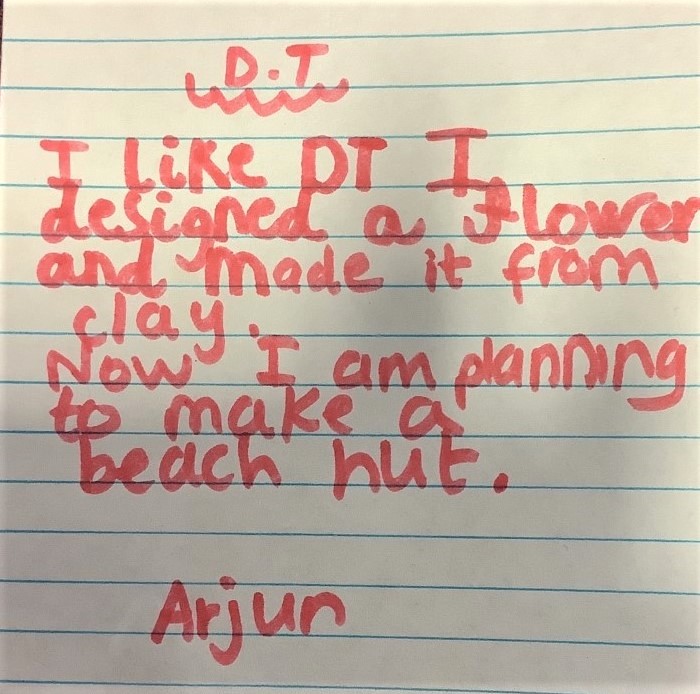 D.T
I like DT I
designed a flower
and made it from
clay.
Now I am planning
to make a
beach hut.
Arjun